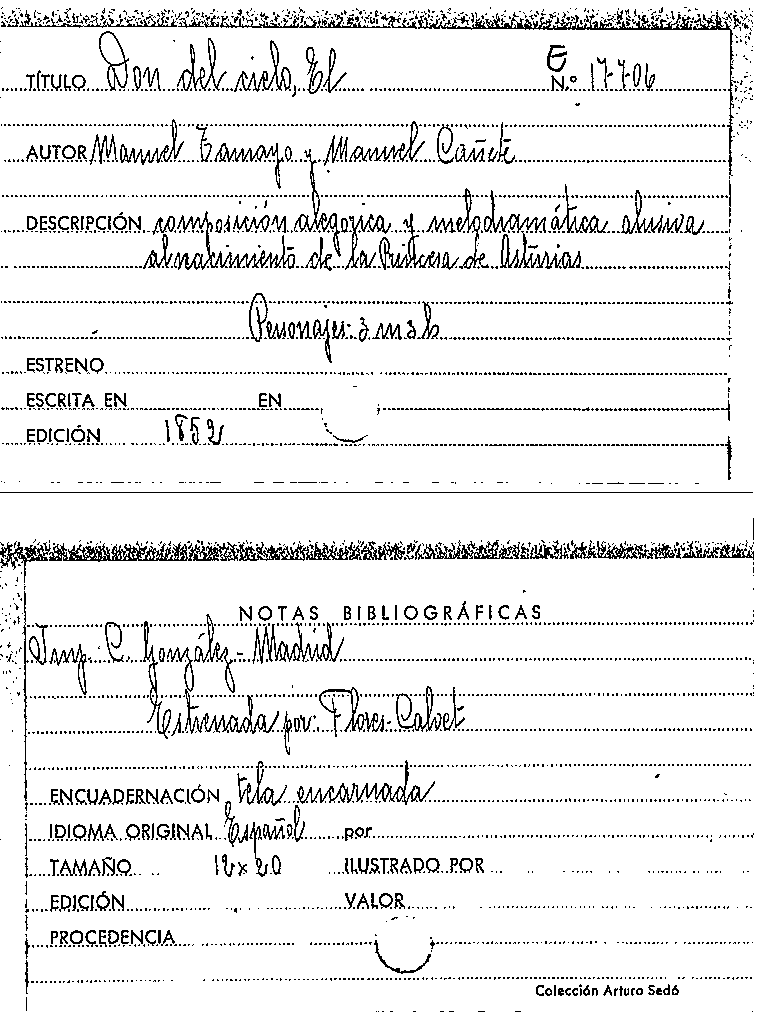 E
TÍTULO Don del cielo, El N.º 17-7-06
AUTOR Manuel Tamayo y Manuel Cañete
DESCRIPCIÓN composición alegorica y melodramática alusiva
al nacimiento de la Princesa de Asturias
Personajes: 3 m 3 h
ESTRENO
ESCRITA EN EN
EDICIÓN 1852
NOTAS BIBLIOGRÁFICAS
Imp. C. González - Madrid
Estrenada por: Flores-Calvet
ENCUADERNACIÓN tela encarnada
IDIOMA ORIGINAL Español por
TAMAÑO 12 x 20 ILUSTRADO POR
EDICIÓN VALOR
PROCEDENCIA
Colección Arturo Sedó